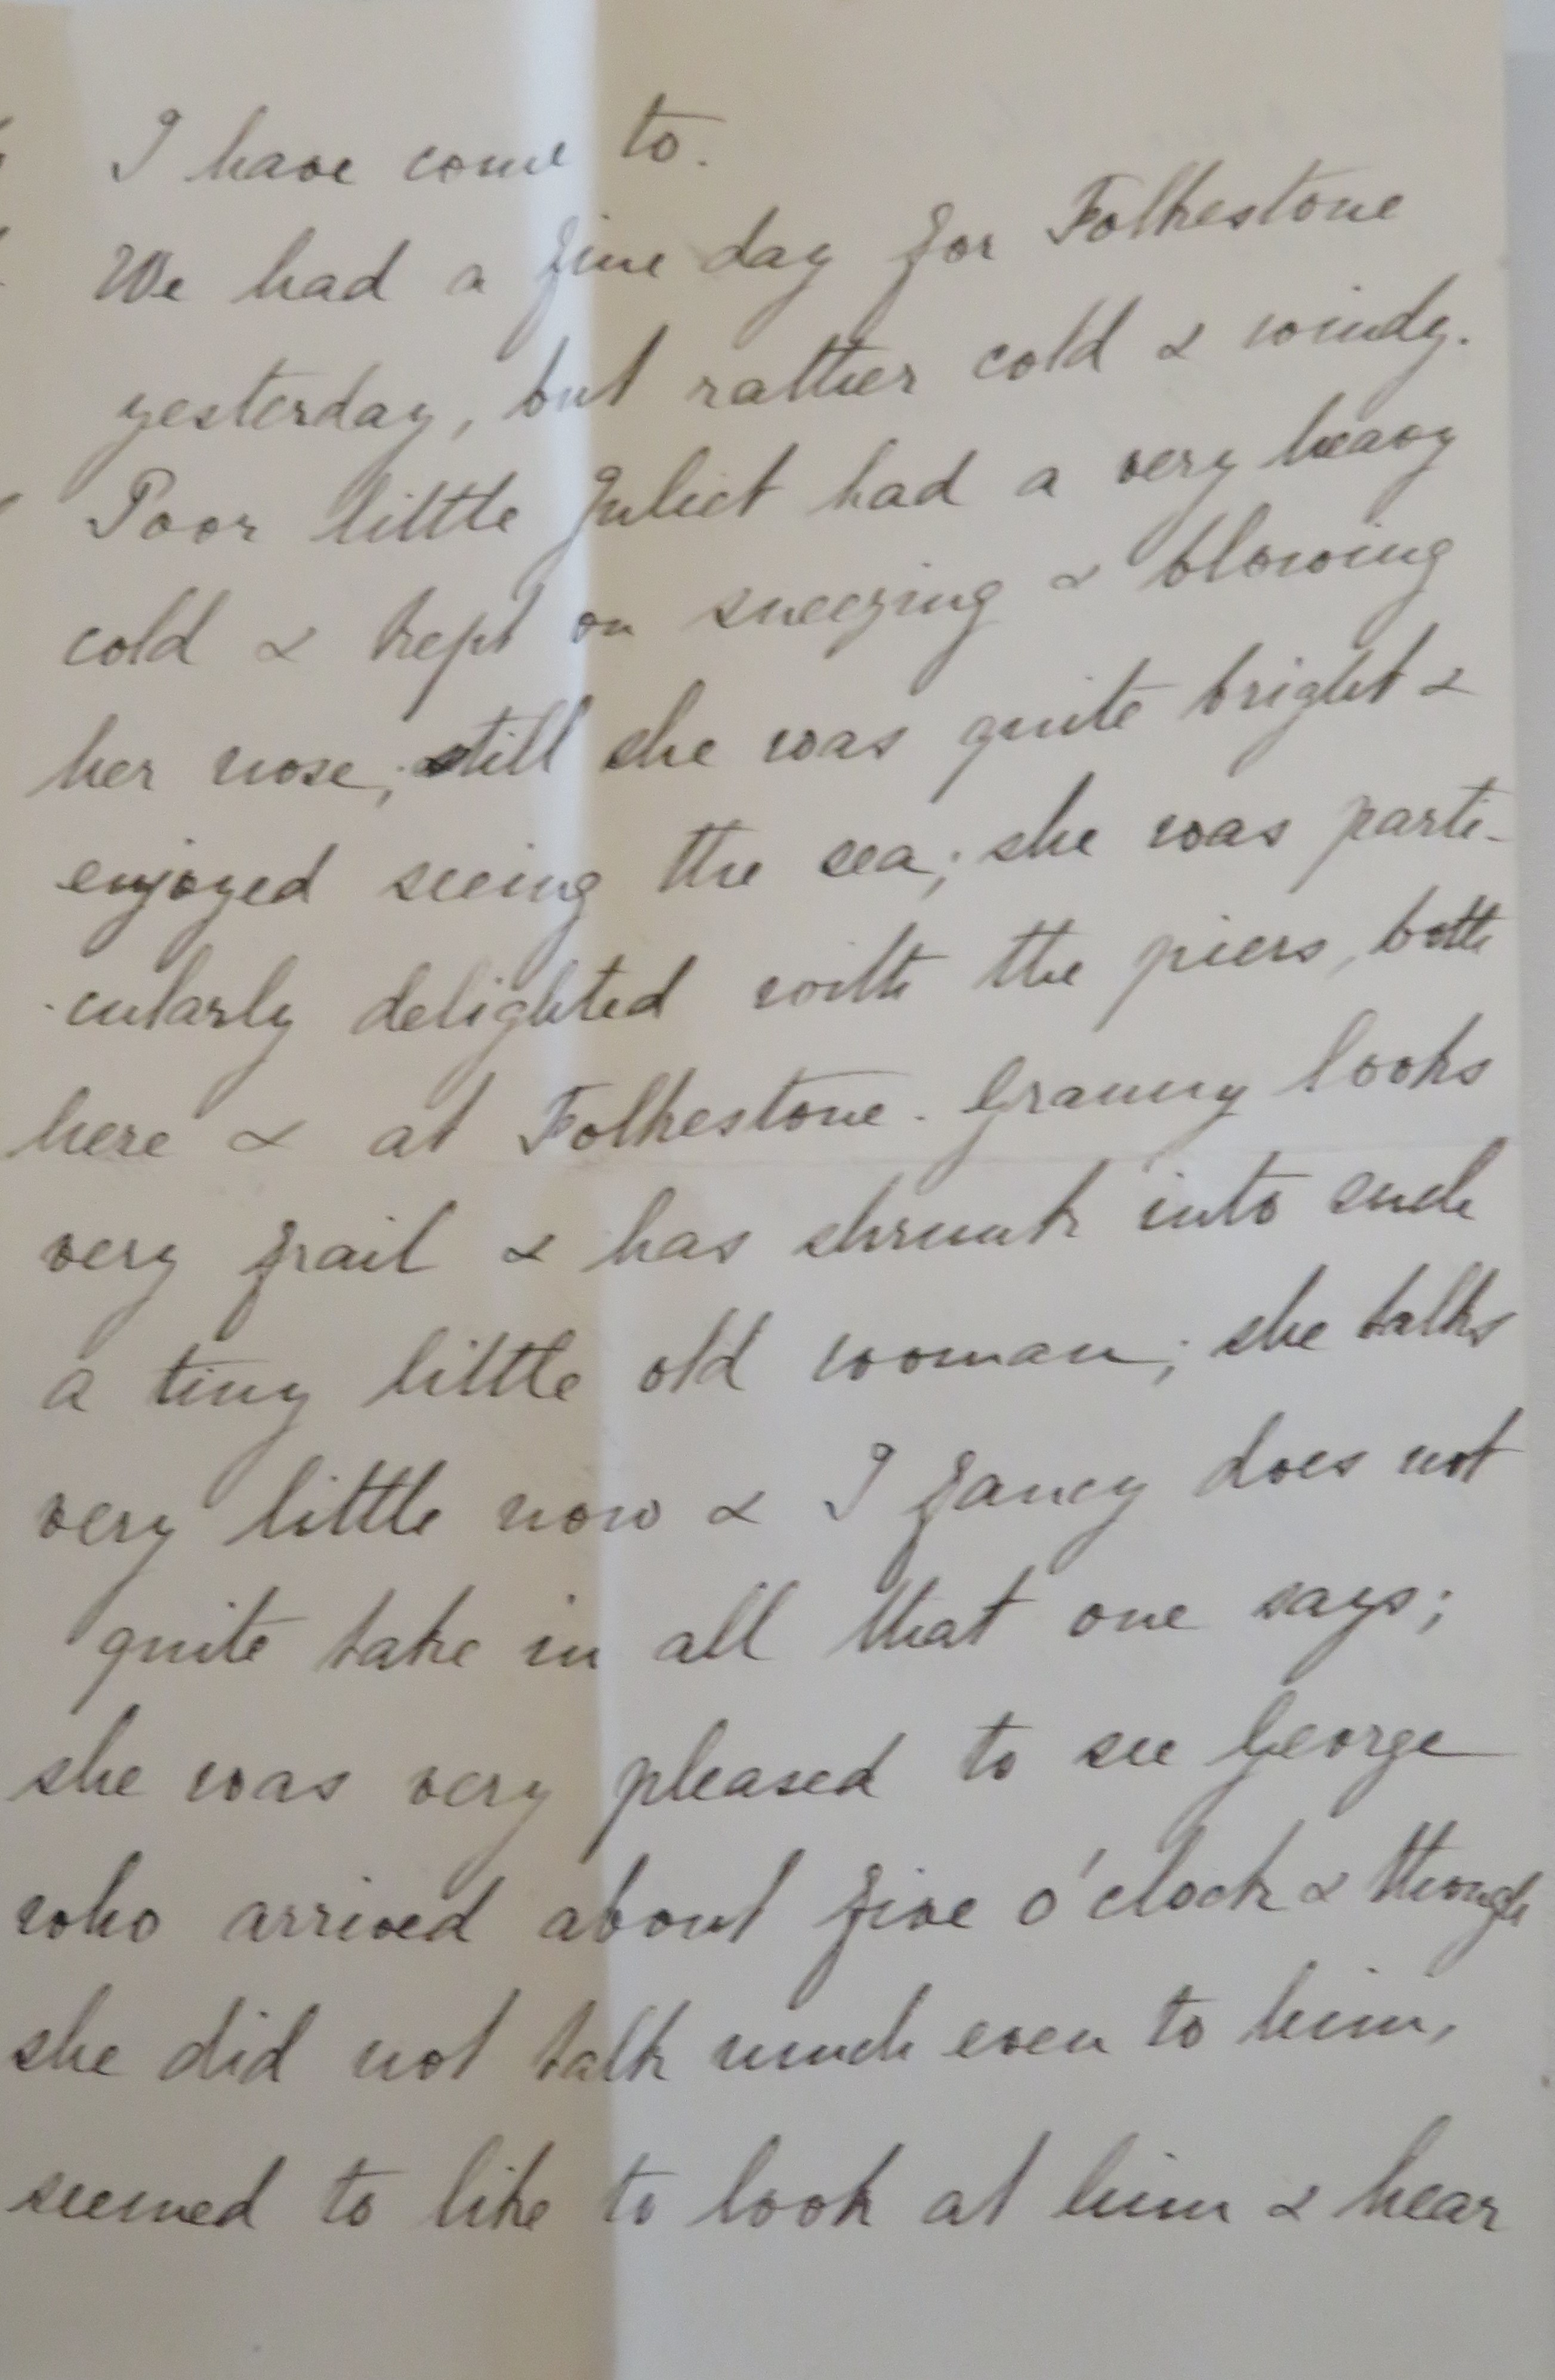 I have come to.
We had a fine day for Folkestone
yesterday, but rather cold & windy.
Poor little Juliet had a very heavy
cold & kept on sneezing & blowing
her nose; still she was quite bright &
enjoyed seeing the sea; she was parti-
cularly delighted with the piers, both
here & at Folkestone. Granny looks
very frail & has shrunk into such
a tiny little old woman; she talks
very little now & I fancy does not
quite take in all that one says;
she was very pleased to see George
who arrived about five o'clock & though
she did not talk much even to him,
seemed to like to look at him & hear